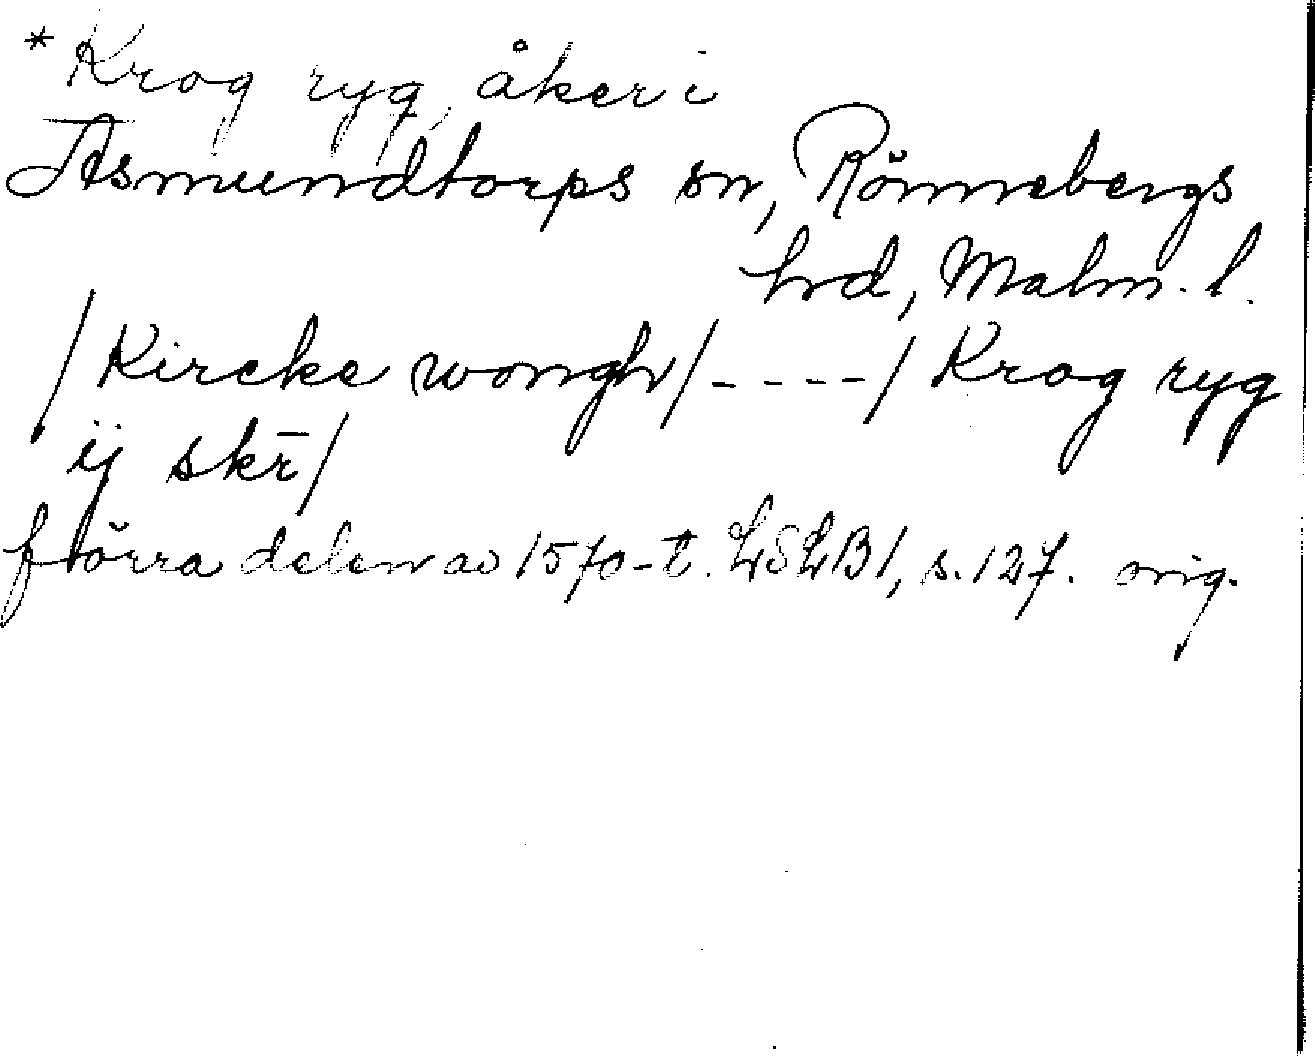 *Krog ryg, åker i
Asmundtorps sn, Rönnebergs
hrd, Malm. l.
/Kircke wongh/----/ Krog ryg
ij skr̄/
förra delen av 1570-t. LSLB1, s. 127. orig.